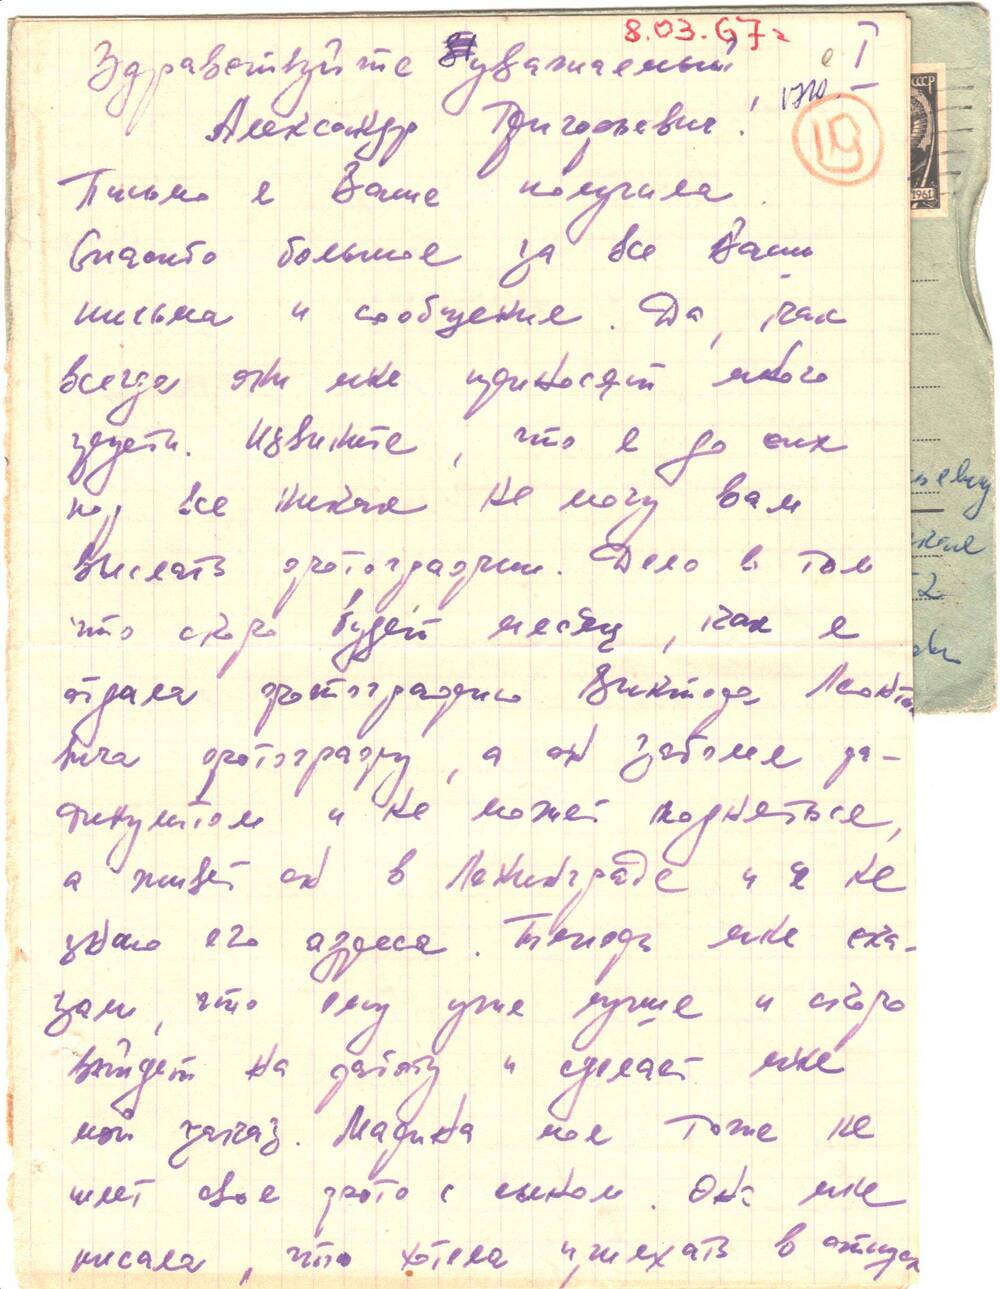 8.03.67г
I
Здравствуйте уважаемый
Александр Григорьевич!
19
Письмо я Ваше получила.
Спасибо большое за все Ваши
письма и сообщения. Да, как
всегда они мне приносят много
грусти. Извините, что я до сих
пор все никак не могу вам
выслать фотографии. Дело в том
что скоро будет месяц, как я
отдала фотографию Виктора Леонть
вича фотографу, а он заболел ра-
дикулитом и не может подняться,
а живет он в Ленинграде и я не
знаю его адреса. Теперь мне ска-
зали, что ему уже лучше и скоро
выйдет на работу и сделает мне
мой заказ. Марина моя тоже не
шлет свое фото с сыном. Она мне
писала, что хотела приехать в отпуск
СССР
1961
евичу